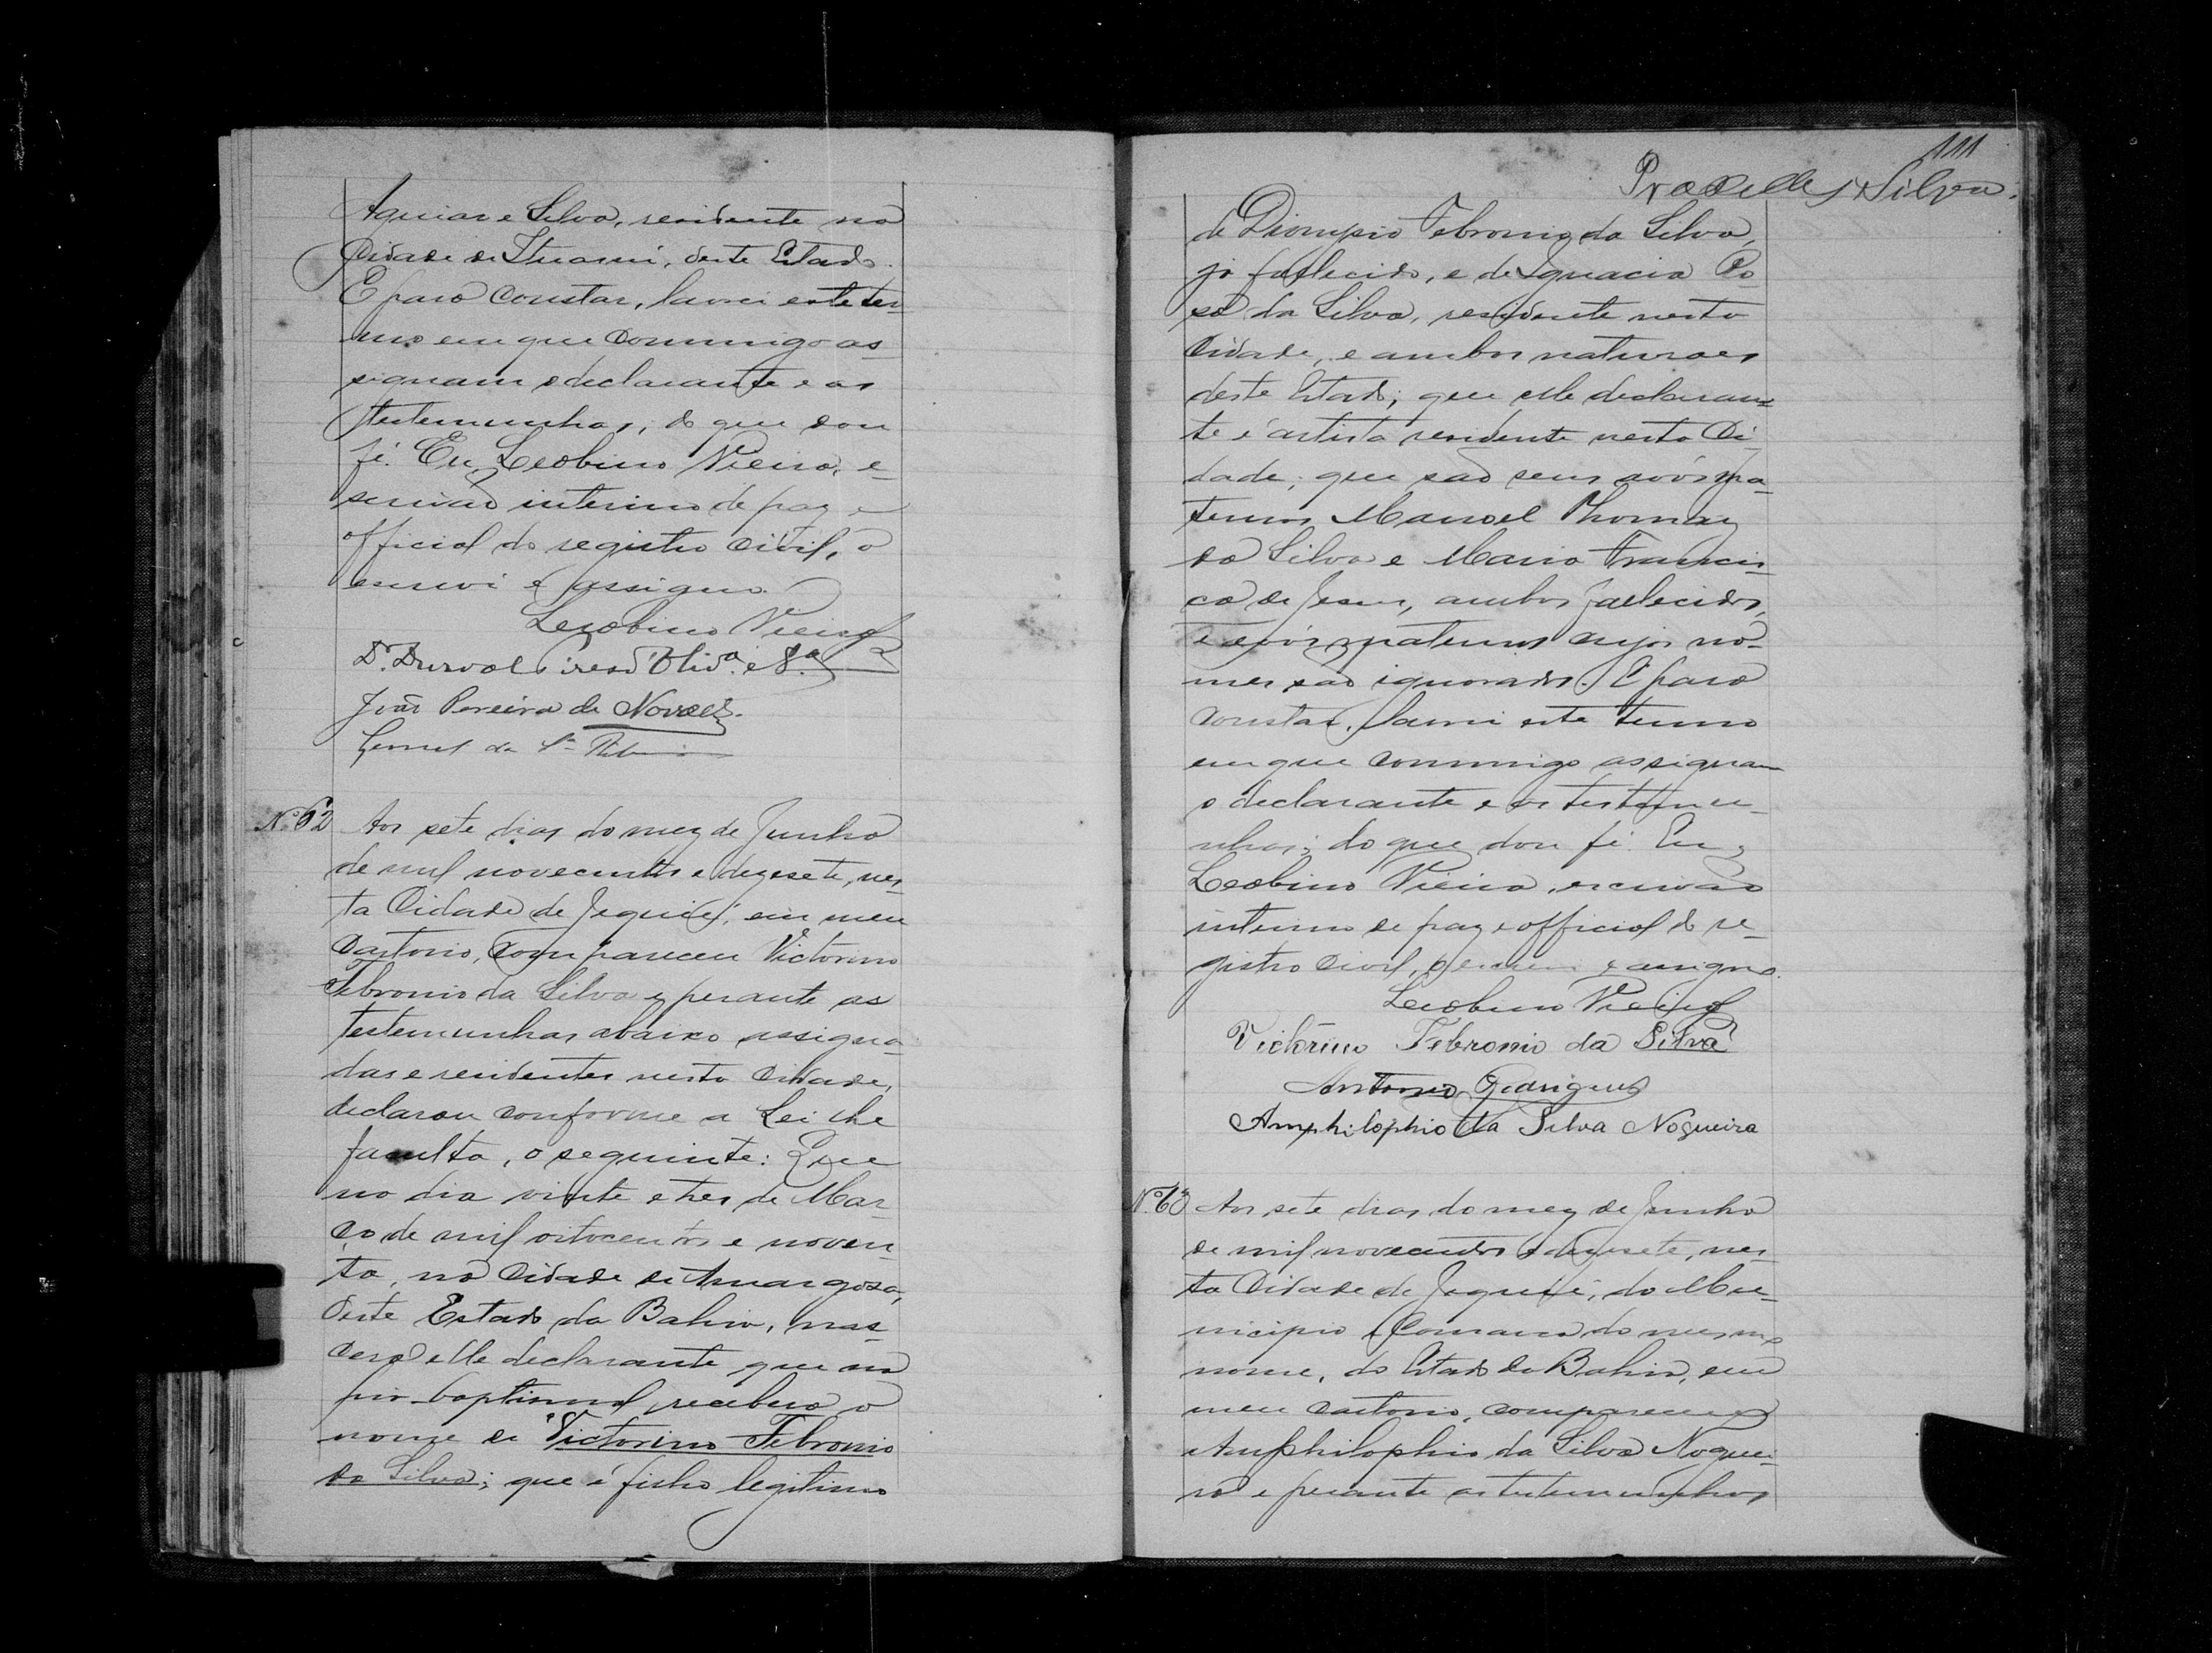 Aguiar e Silva, residente na
Cidade de Ituassú, deste Estado.
E para constar, lavrei este ter-
mo em que commigo as-
signam o declarante e as
testemunhas, do que dou
fé. Eu, Leobino Vieira, e-
scrivão interino de paz e
official do registro civil, o
escrevi e assigno.
Leobino Vieira
Dr. Durval Pires d'Olivª. e Sª.
João Pereira de Novaes.
de Sª
Nº 62 Aos sete dias do mez de Junho
de mil novecentos e dezesete, nes-
ta Cidade de Jequié, em meu
Cartorio, compareceu Victorino
Febronio da Silva e perante as
testemunhas abaixo assigna-
das e residentes nesta Cidade,
declarou conforme a Lei lhe
faculta, o seguinte: Que
no dia vinte e tres de Mar-
ço de mil oitocentos e noven-
ta, na Cidade de Amargosa,
deste Estado da Bahia, nas-
cera elle declarante que na
pia baptismal recebera o
nome de Victorino Febronio
da Silva; que é filho legitimo
111
Silva.
de Dionysio Febronio da Silva,
já fallecido, e de Ignacia Ro-
sa da Silva, residente nesta
Cidade, e ambos naturaes
deste Estado; que elle declaran-
te é artista residente nesta Ci-
dade; que são seus avós ma-
ternos Manoel Thomaz
da Silva e Maria Francis-
ca de Jesus, ambos fallecidos,
e avós paternos cujos no-
mes são ignorados. E para
constar, lavrei este termo
em que commigo assignam
o declarante e as testemu-
nhas; do que dou fé. Eu,
Leobino Vieira, escrivão
interino de paz e official do re-
gistro civil, o escrevi e assigno.
Leobino Vieira
Victorino Febronio da Silva
Antonio Rodrigues
Amphilophio da Silva Nogueira
Nº 63 Aos sete dias do mez de Junho
de mil novecentos e dezesete, nes-
ta Cidade de Jequié, do Mu-
nicipio e Comarca do mesmo
nome, do Estado da Bahia, em
meu cartorio, compareceu
Amphilophio da Silva Noguei-
ra e perante as testemunhas